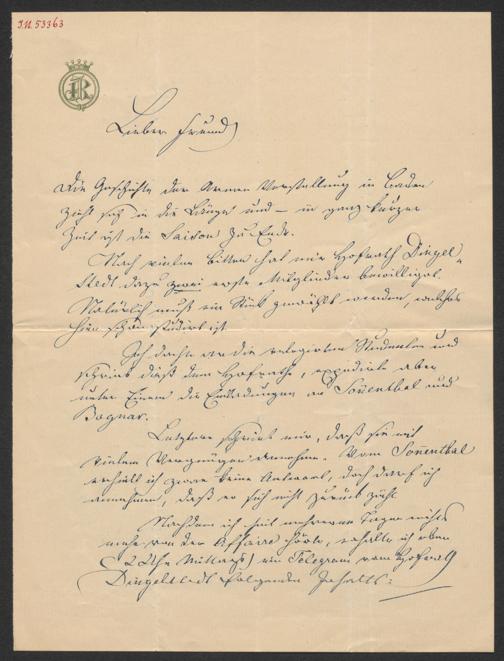 I.N. 53363
Lieber Freund
Die Geschichte der Armen Vorstellung in Baden
zieht sich in die Länge und – in ganz kurzer
Zeit ist die Saison zu Ende.
Nach vielen Bitten hat mir Hofrath Dingel-
stedt dazu zwei erste Mitglieder bewilligt.
Natürlich muß ein Stück gewählt werden, welches
hier schon studiert ist
Ich dachte an die relegirten Studenten und
schrieb dieß dem Hofrathe, expedirte aber
unter Einem die Einladungen an Sonnenthal und
Bognar.
Letztere schrieb mir, daß sie mit
vielem Vergnügen annehme. Vom Sonnenthal
erhielt ich zwar keine Antwort, doch darf ich
annehmen, daß er sich nicht zurück zieht
Nachdem ich seit mehreren Tagen nichts
mehr von der Affaire hörte, erhalte ich eben
(22 Uhr Mittags) ein Telegram vom Hofrath
Dingelstedt folgenden Inhalts: